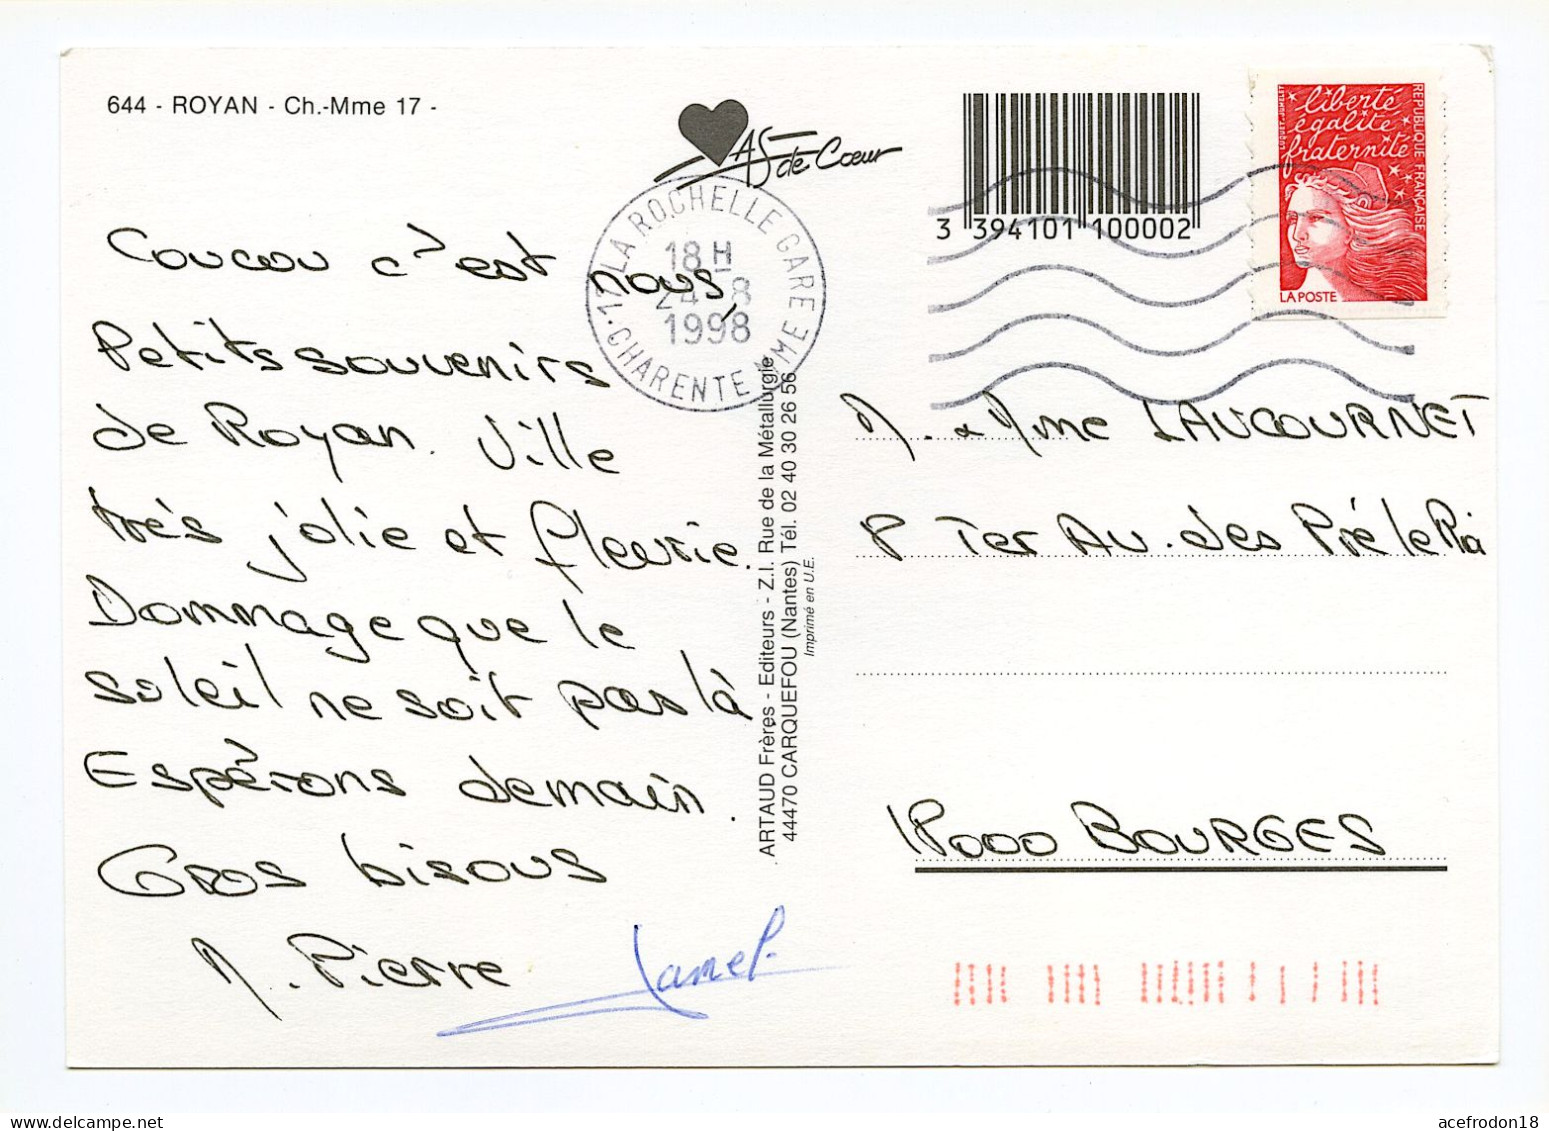 644 - ROYAN - Ch.-Mme 17 -
AS de Cœur
3 394101 100002
liberté
égalité
fraternité
RÉPUBLIQUE FRANÇAISE
LOUQUET-JUMELET
LA POSTE
17 LA ROCHELLE GARE
18 H
24 - 8
1998
CHARENTE MME
Coucou c'est nous,
Petits souvenirs
de Royan. Ville
très jolie et fleurie.
Dommage que le
soleil ne soit pas là
Espérons demain.
Gros bisous
M. Pierre
ARTAUD Frères - Editeurs - Z.I. Rue de la Métallurgie
44470 CARQUEFOU (Nantes) Tél. 02 40 30 26 56
Imprimé en U.E.
M. & Mme LAUCOURNET
8 Ter Av. des Prés le Roi
18000 BOURGES
acefrodon18